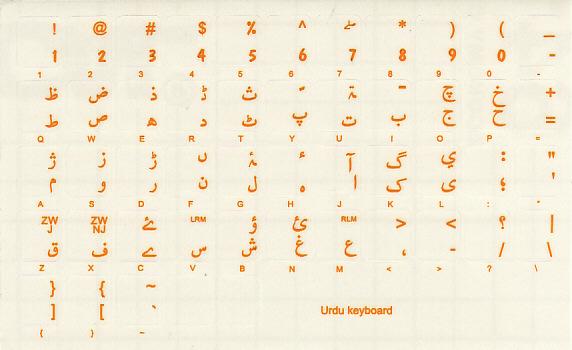 ! @ # $ % ^ ؎ * ) ( _
1 2 3 4 5 6 7 8 9 0 -
1 2 3 4 5 6 7 8 9 0 -
ظ ض ذ ڈ ث ّ ۃ ـ چ خ +
ط ص ھ د ٹ پ ت ب ج ح =
Q W E R T Y U I O P =
ژ ز ڑ ں ۂ ء آ گ ي : "
م و ر ن ل ہ ا ک ی ؛ '
A S D F G H J K L : "
ZWJ ZWNJ ۓ LRM ؤ ئ RLM > < ؟ |
ق ف ے س ش غ ع ، - / \
Z X C V B N M < > ? \
} { ~
] [ `
{ } ~
Urdu keyboard